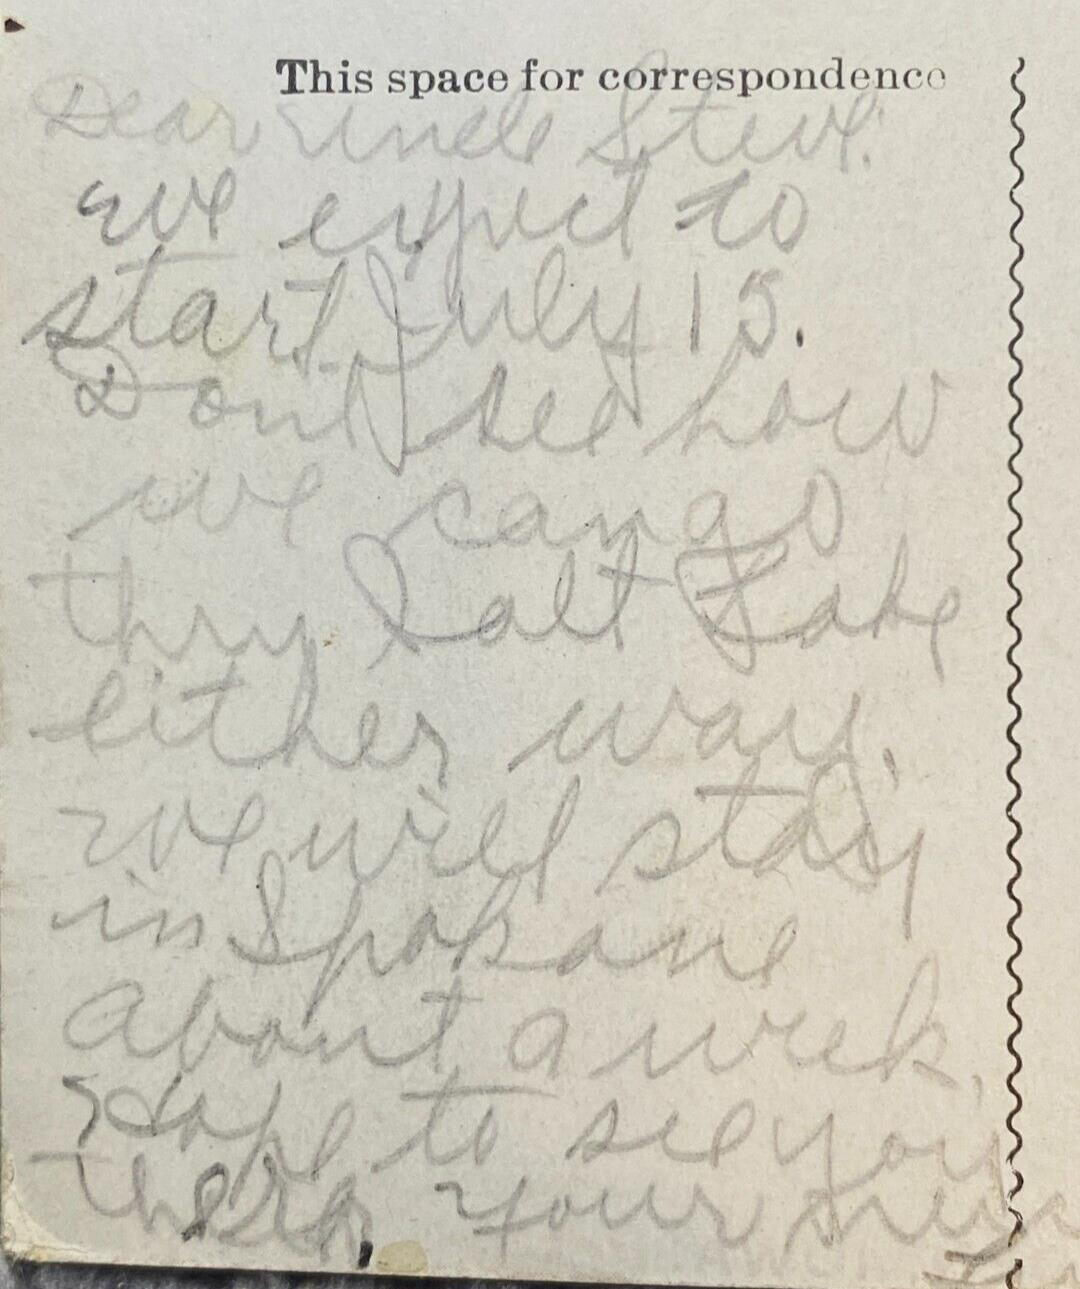 This space for correspondence
Dear Uncle Steve.
we expect to
start July 15.
Dont see how
we can go
thru Salt Lake
either way.
we will stay
in Spokane
about a week.
Hope to see you
there. Your